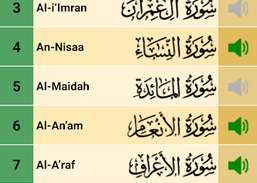 3 Al-i'Imran سُورَةُ آلِ عِمْرَان
4 An-Nisaa سُورَةُ النِّسَاءِ
5 Al-Maidah سُورَةُ المَائِدَة
6 Al-An'am سُورَةُ الأَنْعَام
7 Al-A'raf سُورَةُ الأَعْرَاف